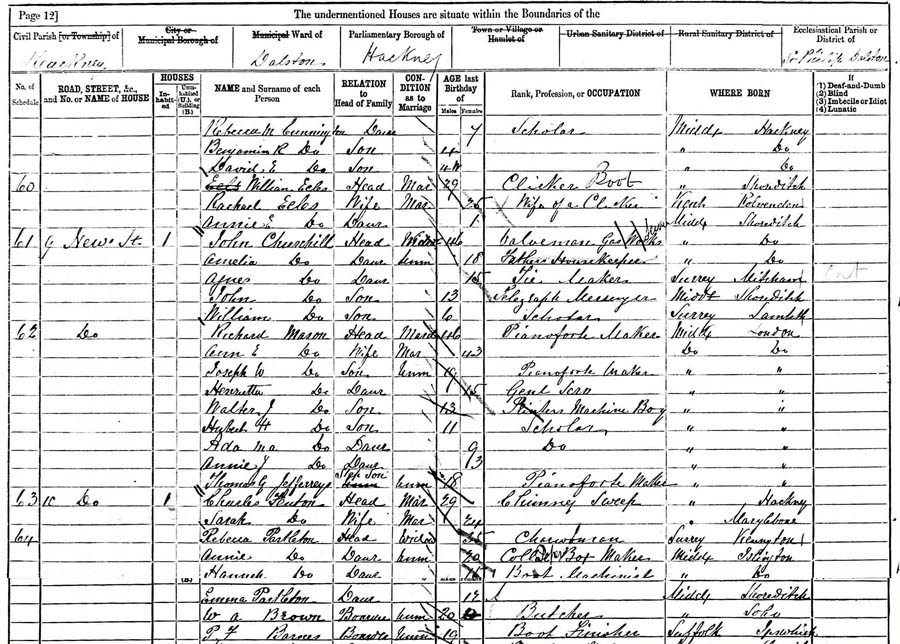 Page 12] The undermentioned Houses are situate within the Boundaries of the
Civil Parish [or Township] of City or Municipal Borough of Municipal Ward of Parliamentary Borough of Town or Village or Hamlet of Urban Sanitary District of Rural Sanitary District of Ecclesiastical Parish or District of
Hackney Dalston Hackney St Philip Dalston
No. of Schedule ROAD, STREET, &c., and No. or NAME of HOUSE HOUSES Inhabited Uninhabited (U.), or Building (B.) NAME and Surname of each Person RELATION to Head of Family CONDITION as to Marriage AGE last Birthday of Males Females Rank, Profession, or OCCUPATION WHERE BORN If (1) Deaf-and-Dumb (2) Blind (3) Imbecile or Idiot (4) Lunatic
Rebecca M Cunnington Daur 7 Scholar Middx Hackney
Benjamin R Do Son 4 " Do
David E Do Son " Do
60 William Eeles Head Mar 29 Clicker Boot " Shoreditch
Rachael Eeles Wife Mar 25 Wife of a Clicker Kent
Annie E Do Daur 1 Middx Shoreditch
61 9 New St 1 John Churchill Head Widr 46 Valveman Gas Works " Do
Amelia Do Daur Unm 18 Fathers Housekeeper " Do
Agnes Do Daur 15 Tie Maker Surrey Mitcham
John Do Son 13 Telegraph Messenger Middx Shoreditch
William Do Son 6 Scholar Surrey Lambeth
62 Do Richard Mason Head Mar 46 Pianoforte Maker Middx London
Ann E Do Wife Mar 43 Do Do
Joseph W Do Son Unm 19 Pianoforte Maker " "
Henrietta Do Daur 15 Genl Serv " "
Walter J Do Son 13 Printers Machine Boy " "
Hubert H Do Son 11 Scholar " "
Ada Do Daur 9 Do " "
Annie J Do Daur 3 " "
Thomas G Jefferreys Step Son Unm 18 Pianoforte Maker " "
63 Do 1 Charles Fenton Head Mar 29 Chimney Sweep " Hackney
Sarah Do Wife Mar 24 " Marylebone
64 Rebecca Partleton Head Widow Charwoman Surrey Kennington
Annie Do Daur Unm 20 Collar Box Maker Middx Islington
Hannah Do Daur Boot Machinist " Do
Emma Partleton Daur 12 Middx Shoreditch
W A Brown Boarder Unm 20 Butcher " Soho
Barnes Boarder Unm 19 Boot Finisher Suffolk Ipswich